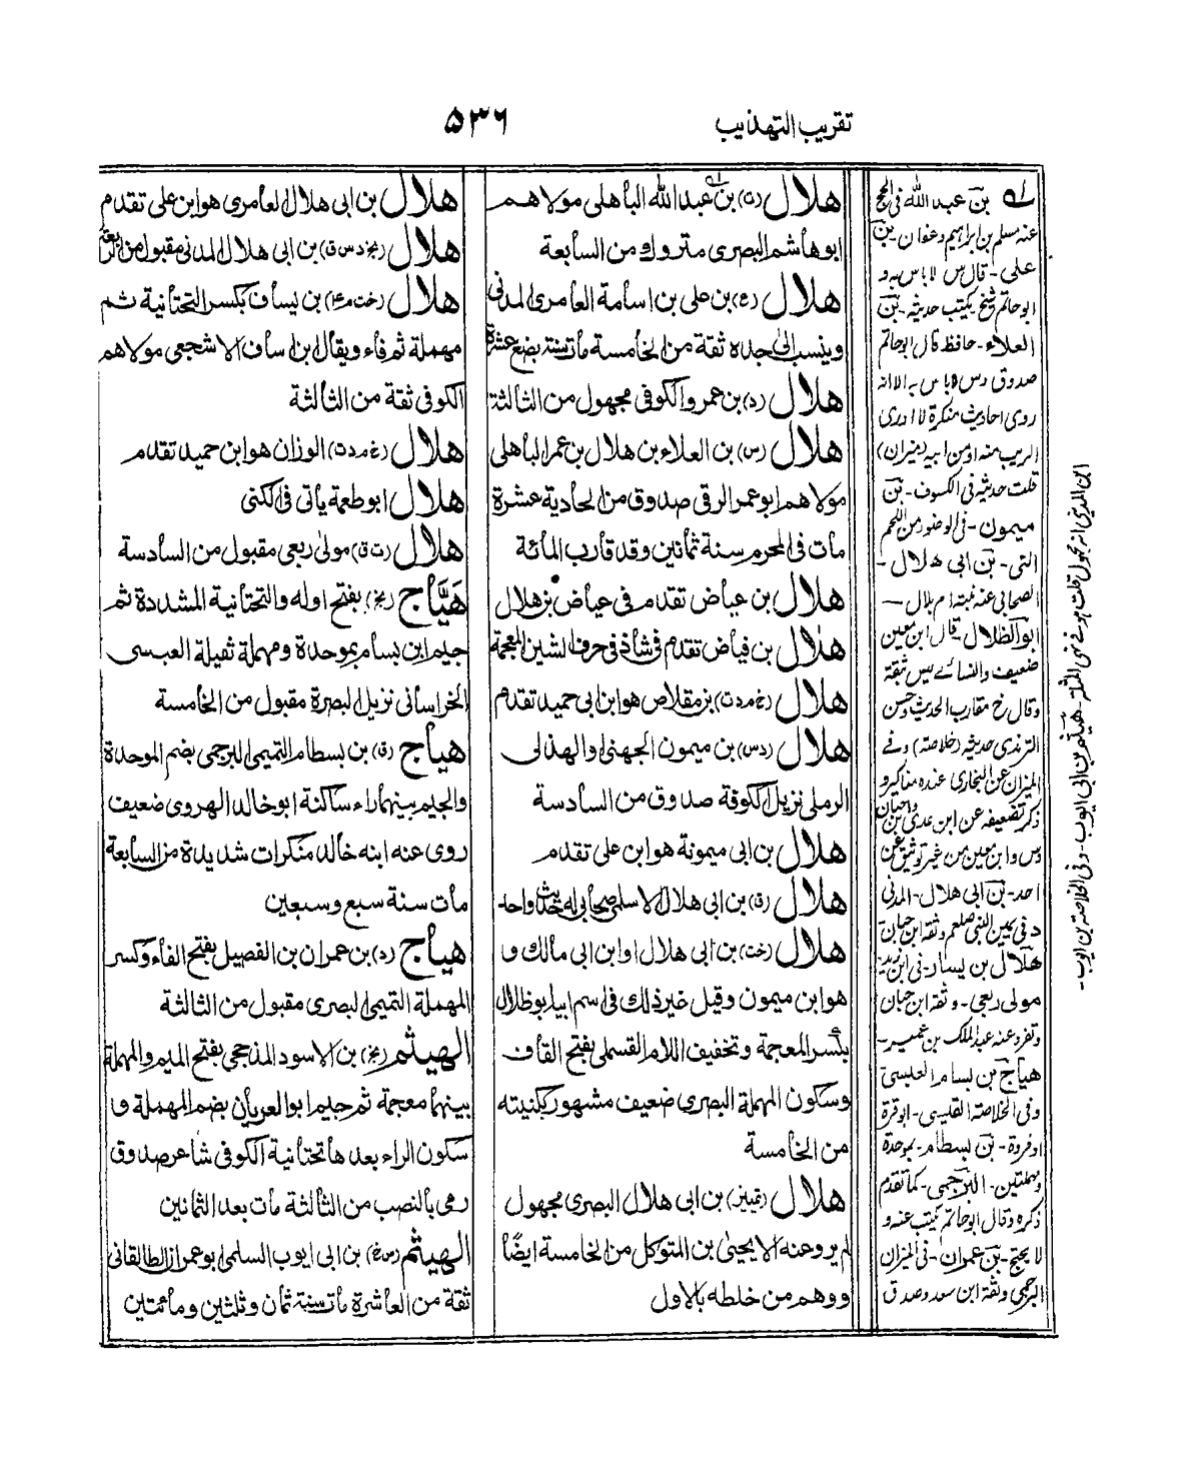 تقريب التهذيب
۵۳۶
هلال (ت) بن عبدالله الباهلى مولاهم
ابوهاشم البصرى متروك من السابعة
هلال (ع) بن على بن اسامة العامرى المدنى
وينسب الى جده ثقة من الخامسة مات سنة بضع عشرة
هلال (د) بن عمرو الكوفى مجهول من الثالثة
هلال (س) بن العلاء بن هلال بن عمر الباهلى
مولاهم ابو عمر الرقى صدوق من الحادية عشرة
مات فى المحرم سنة ثمانين وقد قارب المائة
هلال بن عياض تقدم فى عياض بن هلال
هلال بن فياض تقدم فى شاذ فى حرف الشين المعجمة
هلال (غ مد ت) بن مقلاص هو ابن ابى حميد تقدم
هلال (دس) بن ميمون الجهنى او الهذلى
الرملى نزيل الكوفة صدوق من السادسة
هلال بن ابى ميمونة هو ابن على تقدم
هلال (ق) بن ابى هلال الاسلمى صحابى له حديث واحد
هلال (خت) بن ابى هلال او ابن ابى مالك و
هو ابن ميمون وقيل غير ذلك فى اسم ابيه ابو ظلال
بكسر المعجمة وتخفيف اللام القسملى بفتح القاف
وسكون المهملة البصرى ضعيف مشهور بكنيته
من الخامسة
هلال (تمييز) بن ابى هلال البصرى مجهول
لم يرو عنه الا يحيى بن المتوكل من الخامسة ايضًا
ووهم من خلطه بالاول
هلال بن ابى هلال العامرى هو ابن على تقدم
هلال (بخ دس ق) بن ابى هلال المدنى مقبول من الرابعة
هلال (خت م ع) بن يساف بكسر التحتانية ثم
مهملة ثم فاء ويقال ابن اساف الاشجعى مولاهم
الكوفى ثقة من الثالثة
هلال (غ مد ت) الوزان هو ابن حميد تقدم
هلال ابو طعمة يأتى فى الكنى
هلال (ت ق) مولى ربعى مقبول من السادسة
هَيَّاج (بخ) بفتح اوله والتحتانية المشددة ثم
جيم ابن بسام بموحدة ومهملة ثقيلة العبسى
الخراسانى نزيل البصرة مقبول من الخامسة
هياج (ق) بن بسطام التميمى البرجمى بضم الموحدة
والجيم بينهما راء ساكنة ابو خالد الهروى ضعيف
روى عنه ابنه خالد منكرات شديدة من السابعة
مات سنة سبع وسبعين
هياج (د) بن عمران بن الفصيل بفتح الفاء وكسر
المهملة التميمى البصرى مقبول من الثالثة
الهيثم (بخ) بن الاسود المذحجى بفتح الميم والمهملة
بينهما معجمة ثم جيم ابو العريان بضم المهملة و
سكون الراء بعدها تحتانية الكوفى شاعر صدوق
رمى بالنصب من الثالثة مات بعد الثمانين
الهيثم (س) بن ابى ايوب السلمى ابو عمران الطالقانى
ثقة من العاشرة مات سنة ثمان وثلثين ومائتين
له بن عبد الله فى الحج
عنه مسلم بن ابراهيم وعفان بن
على - قال س لا باس به و
ابو حاتم شيخ يكتب حديثه - بن
العلاء - حافظ قال ابو حاتم
صدوق وس لا باس به الا انه
روى احاديث منكرة لا ادرى
الريب منه او من ابيه (ميزان)
قلت حديثه فى الكسوف - بن
ميمون - فى الوضوء من اللحم
النى - بن ابى هلال -
الصحابى عنه ابنته ام بلال -
ابو الظلال قال ابن معين
ضعيف والنسائے ليس بثقة
وقال خ مقارب الحديث وحسن
الترمذى حديثه (خلاصة) وفے
الميزان عن البخارى عنده مناكير و
ذكر تضعيفه عن ابن عدى وابن حبان
وس وابن معين من غير توثيق عن
احد - بن ابى هلال - المدنى
وثقه ابن حبان
هلال بن يسار - فى ابن زيد
مولى ربعى - وثقه ابن حبان
وتفرد عنه عبد الملك بن عمير -
هياج بن بسام العبسى
وفى الخلاصة القيسى - ابو قرة
او فروة - بن بسطام - بموحدة
ومهملتين - البرجمى - كما تقدم
ذكره وقال ابو حاتم يكتب عنه و
لا يحتج - بن عمران - فى الميزان
البرجمى وثقه ابن سعد وصدق
ابن المدينى انه مجهول قلت هو فے نهى المثلة - هيثم بن ابى ايوب - وفى الخلاصة بن ايوب -